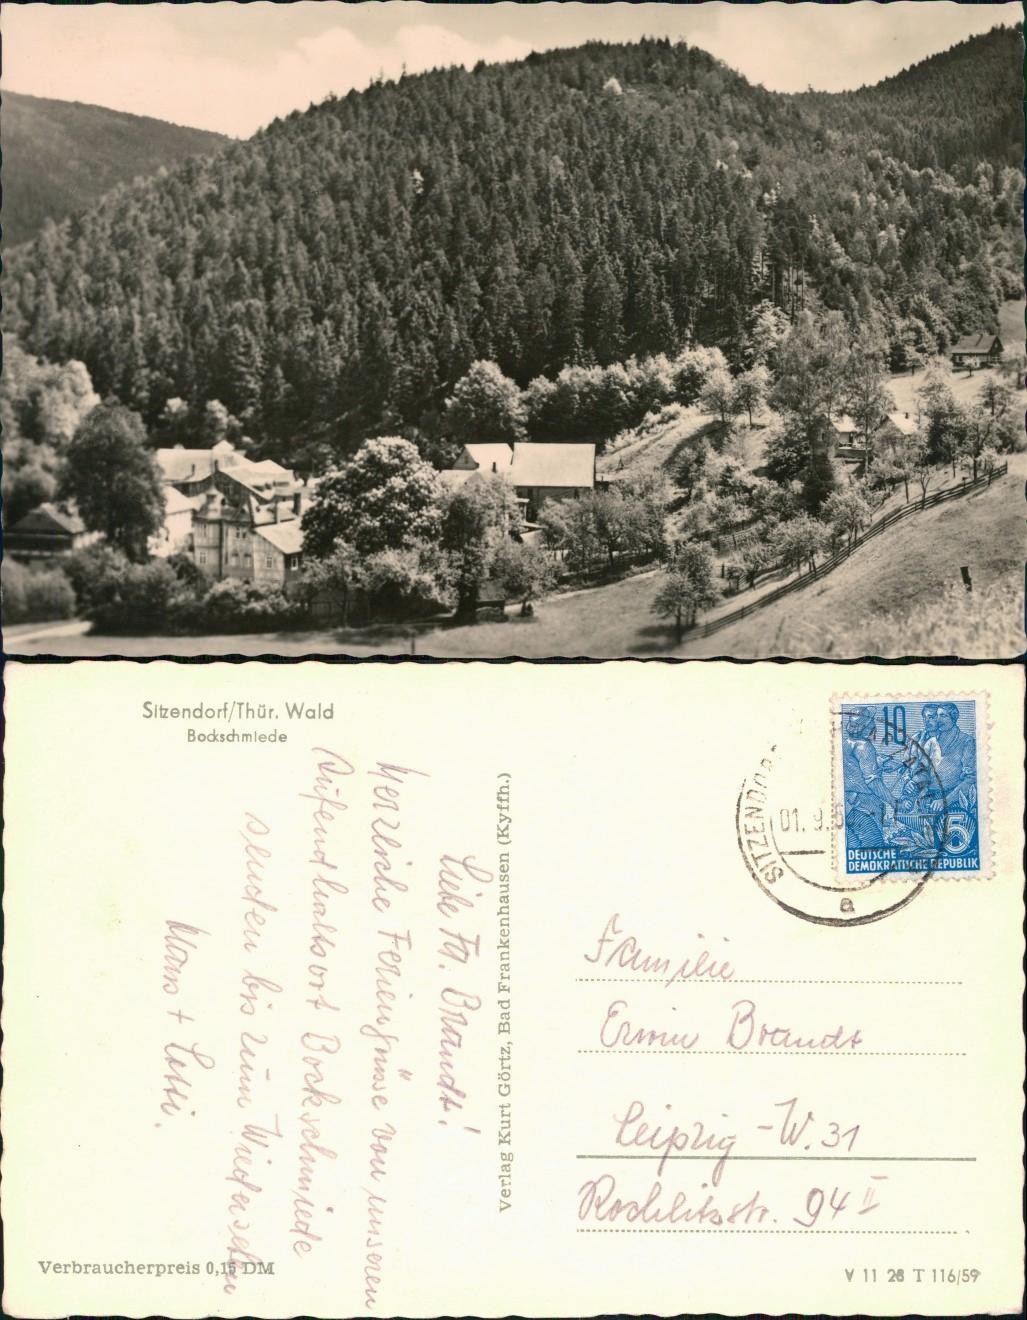 Sitzendorf/Thür. Wald
Bockschmiede
Liebe Fa. Brandt!
Herzliche Feriengrüsse von unseren
Aufendhaltsort Bockschmiede
senden bis zum Wiedersehen
Hans + Lotti.
Verbraucherpreis 0,15 DM
Verlag Kurt Görtz, Bad Frankenhausen (Kyffh.)
10
5
DEUTSCHE
DEMOKRATISCHE REPUBLIK
SITZENDORF
01. 9.
a
Familie
Erwin Brandt
Leipzig - W. 31
Rochlitzstr. 94 II
V 11 28 T 116/59